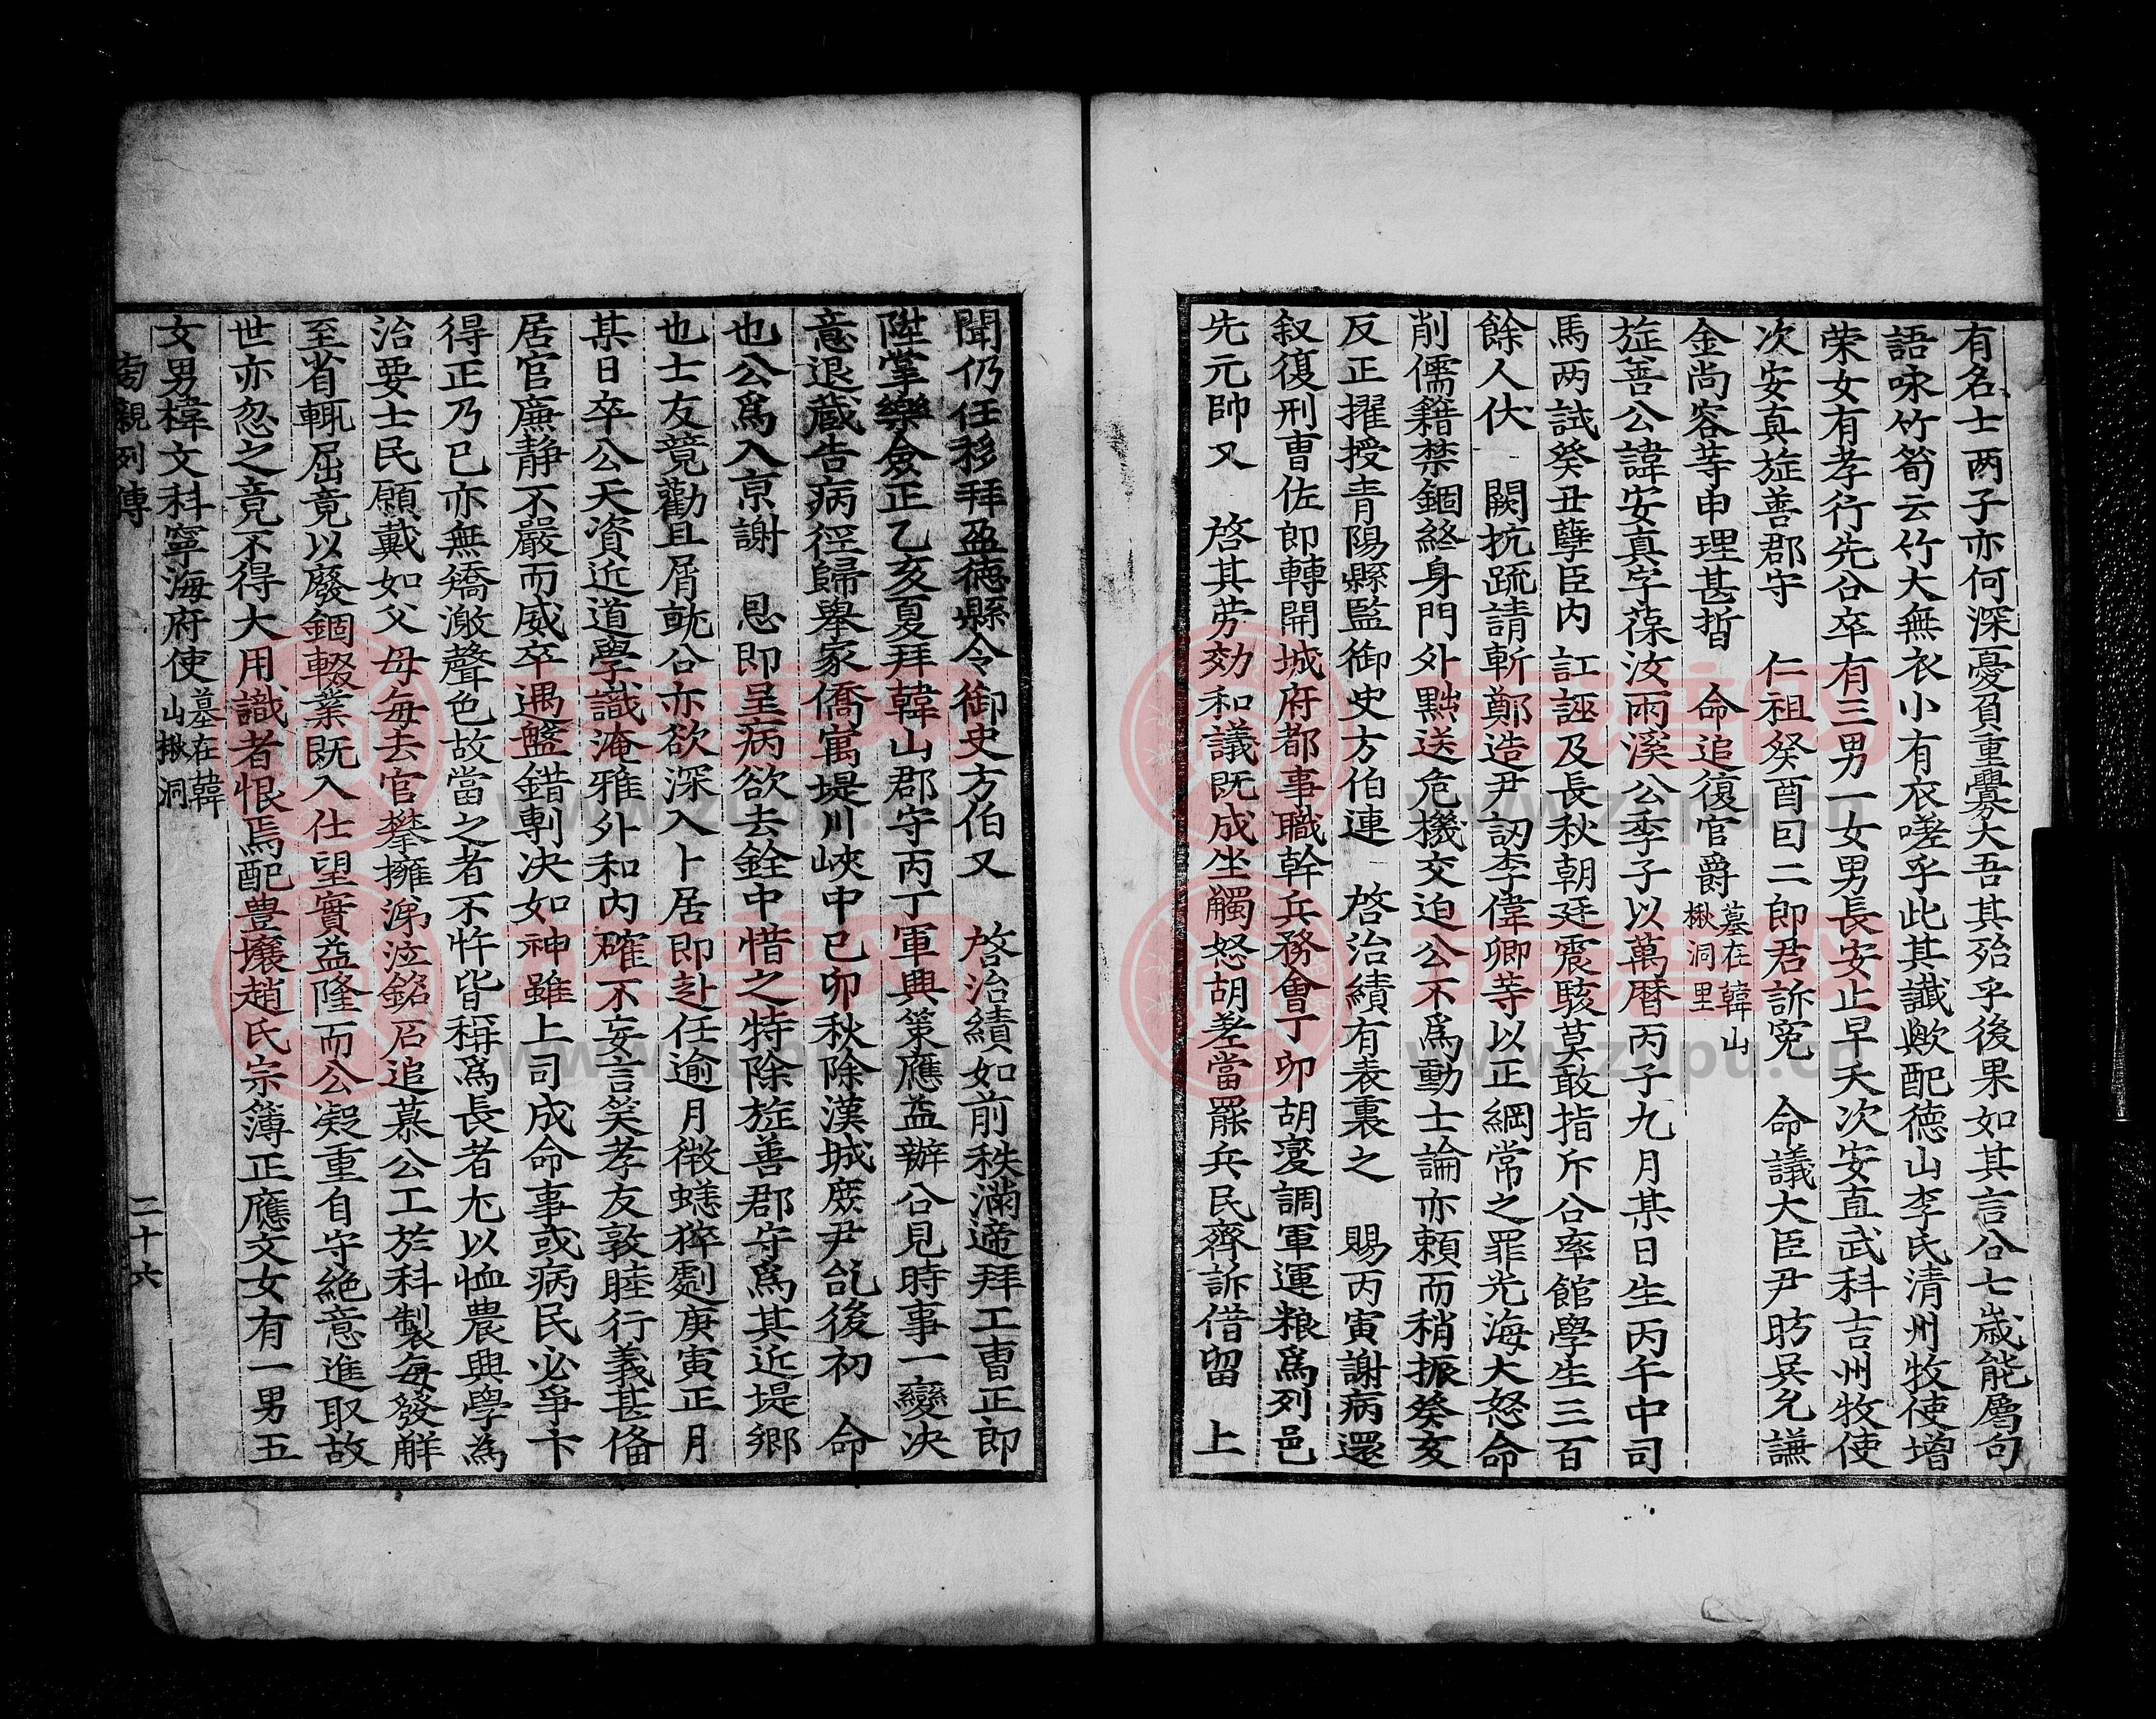 有名士两子亦何深憂負重釁大吾其殆乎後果如其言公七歲能屬句
語咏竹筍云竹大無衣小有衣嗟乎此其讖歟配德山李氏清州牧使增
荣女有孝行先公卒有三男一女男長安止早夭次安直武科吉州牧使
次安真旌善郡守 仁祖癸酉回二郎君訴冤 命議大臣尹昉吳允謙
金尚容等申理甚晢 命追復官爵墓在韓山楸洞里
旌善公諱安真字葆汝雨溪公季子以萬曆丙子九月某日生丙午中司
馬两試癸丑孽臣内 訌誣及長秋朝廷震駭莫敢指斥公率館學生三百
餘人伏 闕抗疏請斬鄭造尹訒李偉卿等以正綱常之罪光海大怒命
削儒籍禁錮終身門外黜送危機交迫公不爲動士論亦頼而稍振癸亥
反正擢授青陽縣監御史方伯連 啓治績有表裏之 賜丙寅謝病還
叙復刑曹佐郎轉開城府都事職幹兵務會丁卯胡變調軍運粮爲列邑
先元帥又 啓其劳効和議既成坐觸怒胡差當罷兵民齊訴借留 上
聞仍任移拜盈德縣令御史方伯又 啓治績如前秩滿遞拜工曹正郎
陞掌樂僉正乙亥夏拜韓山郡守丙丁軍興策應益辦公見時事一變决
意退藏告病徑歸舉家僑寓堤川峽中己卯秋除漢城庶尹訖後初 命
也公爲入京謝 恩即呈病欲去銓中惜之特除旌善郡守爲其近堤鄉
也士友竟勸且屑就公亦欲深入卜居即赴任逾月徵蟋猝劇庚寅正月
某日卒公天資近道學識淹雅外和内確不妄言笑孝友敦睦行義甚俻
居官廉静不嚴而威卒遇盤錯剸决如神雖上司成命事或病民必爭卞
得正乃已亦無矯激聲色故當之者不忤皆稱爲長者尤以恤農興學為
治要士民願戴如父母每去官攀擁涕泣銘石追慕公工於科製每發解
至省輒屈竟以廢錮輟業既入仕望實益隆而公凝重自守絶意進取故
世亦忽之竟不得大用識者恨焉配豊壤趙氏宗簿正應文女有一男五
女男椲文科寧海府使墓在韓山楸洞
親列傳 二十六